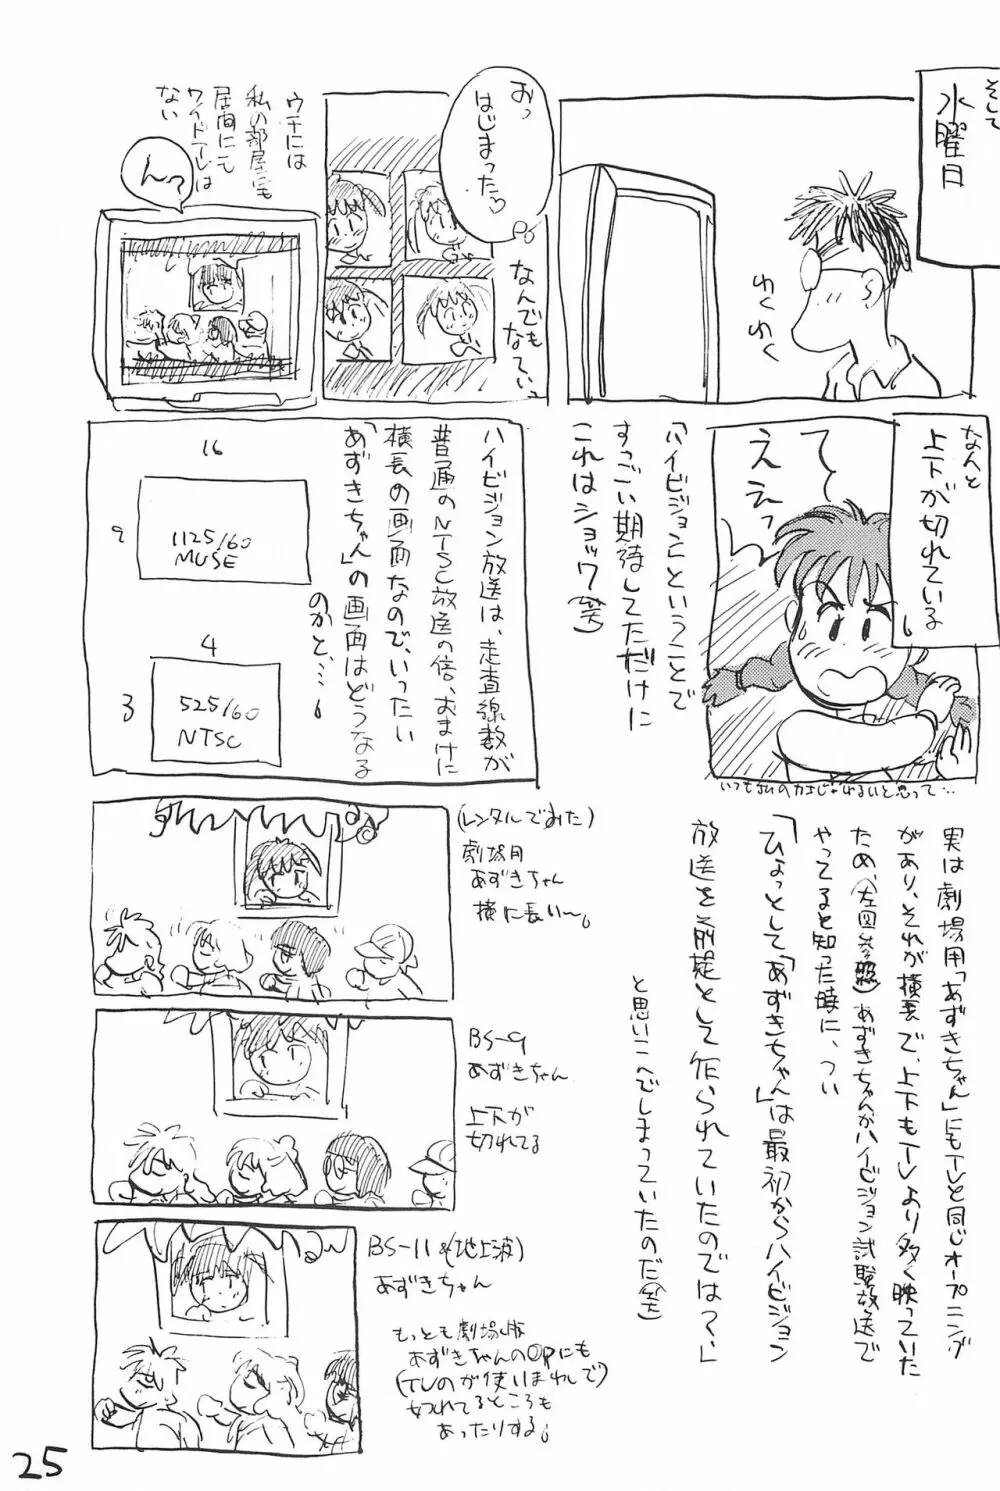 そして
水曜日
わくわく
おっ
はじまった♡
なんでも
なてぃ、
ウチには
私の部屋にも
居間にも
ワイドテレビは
ない
んっ
なんと
上下が切れている
えぇっ
て
いつもHiのカオじゃわるいと思って…
「ハイビジョン」ということで
すっごい期待してただけに
これはショック(笑)
ハイビジョン放送は、走査線数が
普通のNTSC放送の倍、おまけに
横長の画面なので、いったい
「あずきちゃん」の画面はどうなる
のかと、、、
16
9
1125/60
MUSE
4
3
525/60
NTSC
実は劇場用「あずきちゃん」にもTVと同じオープニング
があり、それが横長で、上下もTVより多く映っていた
ため、(左図参照)あずきちゃんがハイビジョン試験放送で
やってると知った時に、つい
「ひょっとして、「あずきちゃん」は最初からハイビジョン
放送を前提として作られていたのでは?」
と思いこんでしまっていたのだ(笑)
(レンタルでみた)
劇場用
あずきちゃん
横に長い〜。
BS-9
あずきちゃん
上下が
切れてる
BS-11&(地上波)
あずきちゃん
もっとも劇場版
あずきちゃんのOPにも
(TVのが使いまわしで)
切れてるところも
あったりする。
25